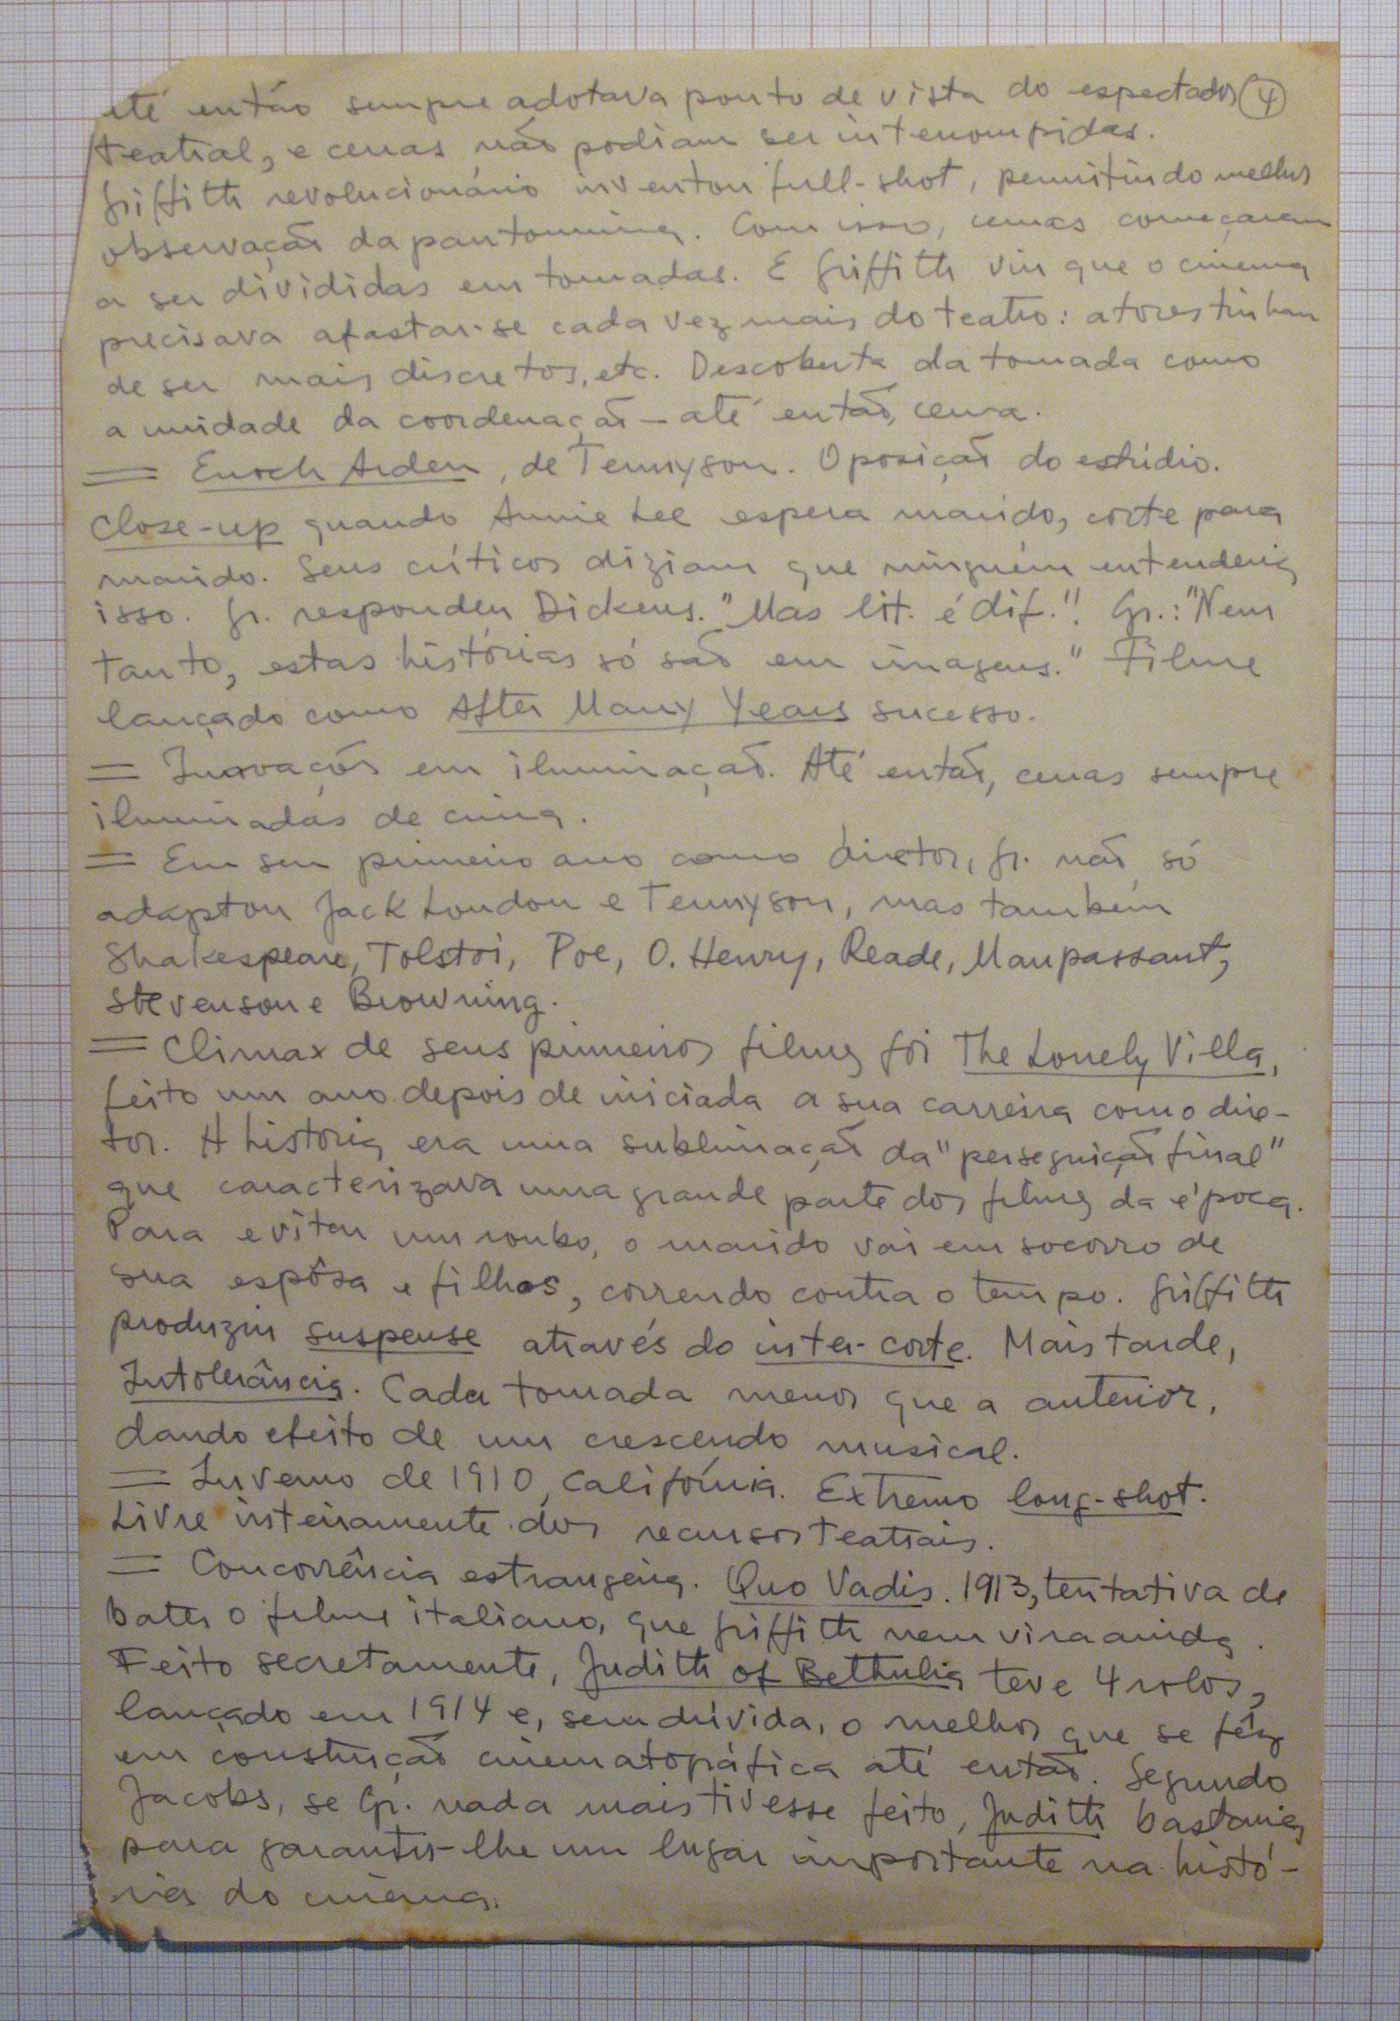 até então sempre adotava ponto de vista do espectador ④
teatral, e cenas não podiam ser interrompidas.
Griffith revolucionário inventou full-shot, permitindo melhor
observação da pantomima. Com isso, cenas começaram
a ser divididas em tomadas. E Griffith viu que o cinema
precisava afastar-se cada vez mais do teatro: atores tinham
de ser mais discretos, etc. Descoberta da tomada como
a unidade da coordenação — até então, cena.
= Enoch Arden, de Tennyson. Oposição do estúdio.
Close-up quando Annie Lee espera marido, corte para
marido. Seus críticos diziam que ninguém entenderia
isso. Gr. respondeu Dickens. "Mas lit. é dif."! Gr.: "Nem
tanto, estas histórias só são em imagens." Filme
lançado como After Many Years sucesso.
= Inovações em iluminação. Até então, cenas sempre
iluminadas de cima.
= Em seu primeiro ano como diretor, Gr. não só
adaptou Jack London e Tennyson, mas também
Shakespeare, Tolstoi, Poe, O. Henry, Reade, Maupassant,
Stevenson e Browning.
= Climax de seus primeiros filmes foi The Lonely Villa,
feito um ano depois de iniciada a sua carreira como dire-
tor. A historia era uma sublimação da "perseguição final"
que caracterizava uma grande parte dos filmes da época.
Para evitar um roubo, o marido vai em socorro de
sua espôsa e filhos, correndo contra o tempo. Griffith
produziu suspense através do inter-corte. Mais tarde,
Intolerância. Cada tomada menor que a anterior,
dando efeito de um crescendo musical.
= Inverno de 1910, Califórnia. Extremo long-shot.
Livre inteiramente dos recursos teatrais.
= Concorrência estrangeira. Quo Vadis. 1913, tentativa de
bater o filme italiano, que Griffith nem vira ainda.
Feito secretamente, Judith of Bethulia teve 4 rolos,
lançado em 1914 e, sem dúvida, o melhor que se fêz
em construção cinematográfica até então. Segundo
Jacobs, se Gr. nada mais tivesse feito, Judith bastaria
para garantir-lhe um lugar importante na histó-
ria do cinema.